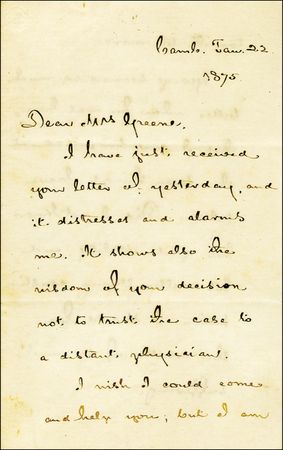 Camb. Jan. 22
1875.
Dear Mrs Greene,
I have just received
your letter of yesterday, and
it distresses and alarms
me. It shows also the
wisdom of your decision
not to trust the case to
a distant physician.
I wish I could come
and help you; but I am